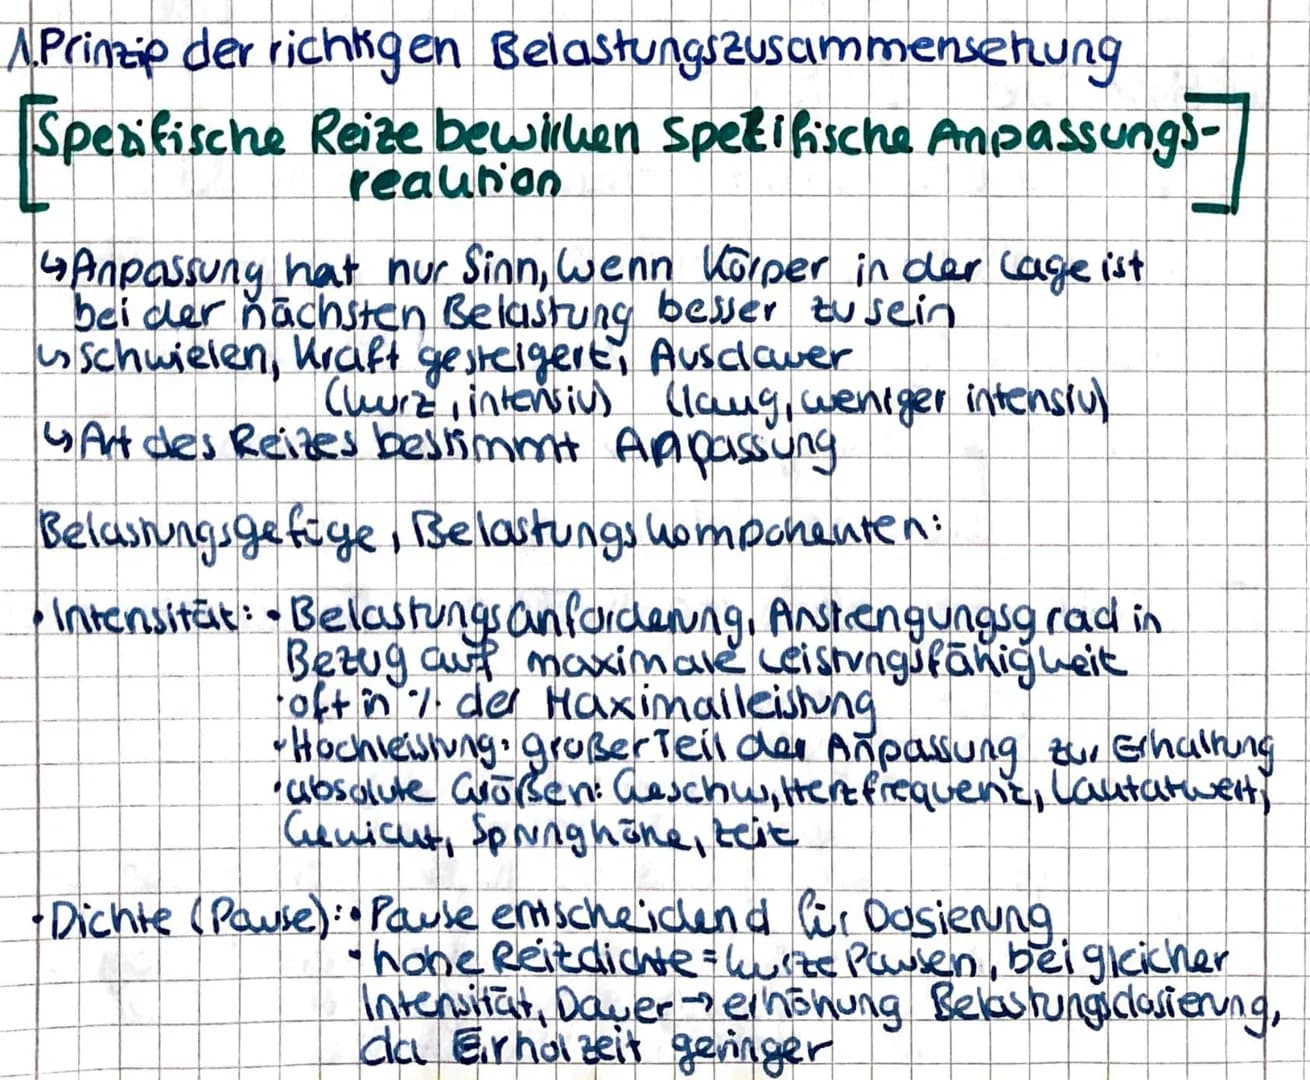 1. Prinzip der richtigen Belastungszusammensetzung
[Spezifische Reize bewirken spezifische Anpassungs-
reaktion]
↳ Anpassung hat nur Sinn, wenn Körper in der Lage ist
bei der nächsten Belastung besser zu sein
↳ schwielen, Kraft gesteigert, Ausdauer
(kurz, intensiv) (lang, weniger intensiv)
↳ Art des Reizes bestimmt Anpassung
Belastungsgefüge, Belastungskomponenten:
• Intensität: • Belastungsanforderung, Anstrengungsgrad in
Bezug auf maximale Leistungsfähigkeit
• oft in % der Maximalleistung
• Hochleistung: großer Teil der Anpassung zur Erhaltung
• absolute Größen: Geschw, Herzfrequenz, Laktatwert,
Gewicht, Sprunghöhe, Zeit
• Dichte (Pause): • Pause entscheidend für Dosierung
• hohe Reizdichte = kurze Pausen, bei gleicher
Intensität, Dauer → erhöhung Belastungsdosierung,
da Erholzeit geringer